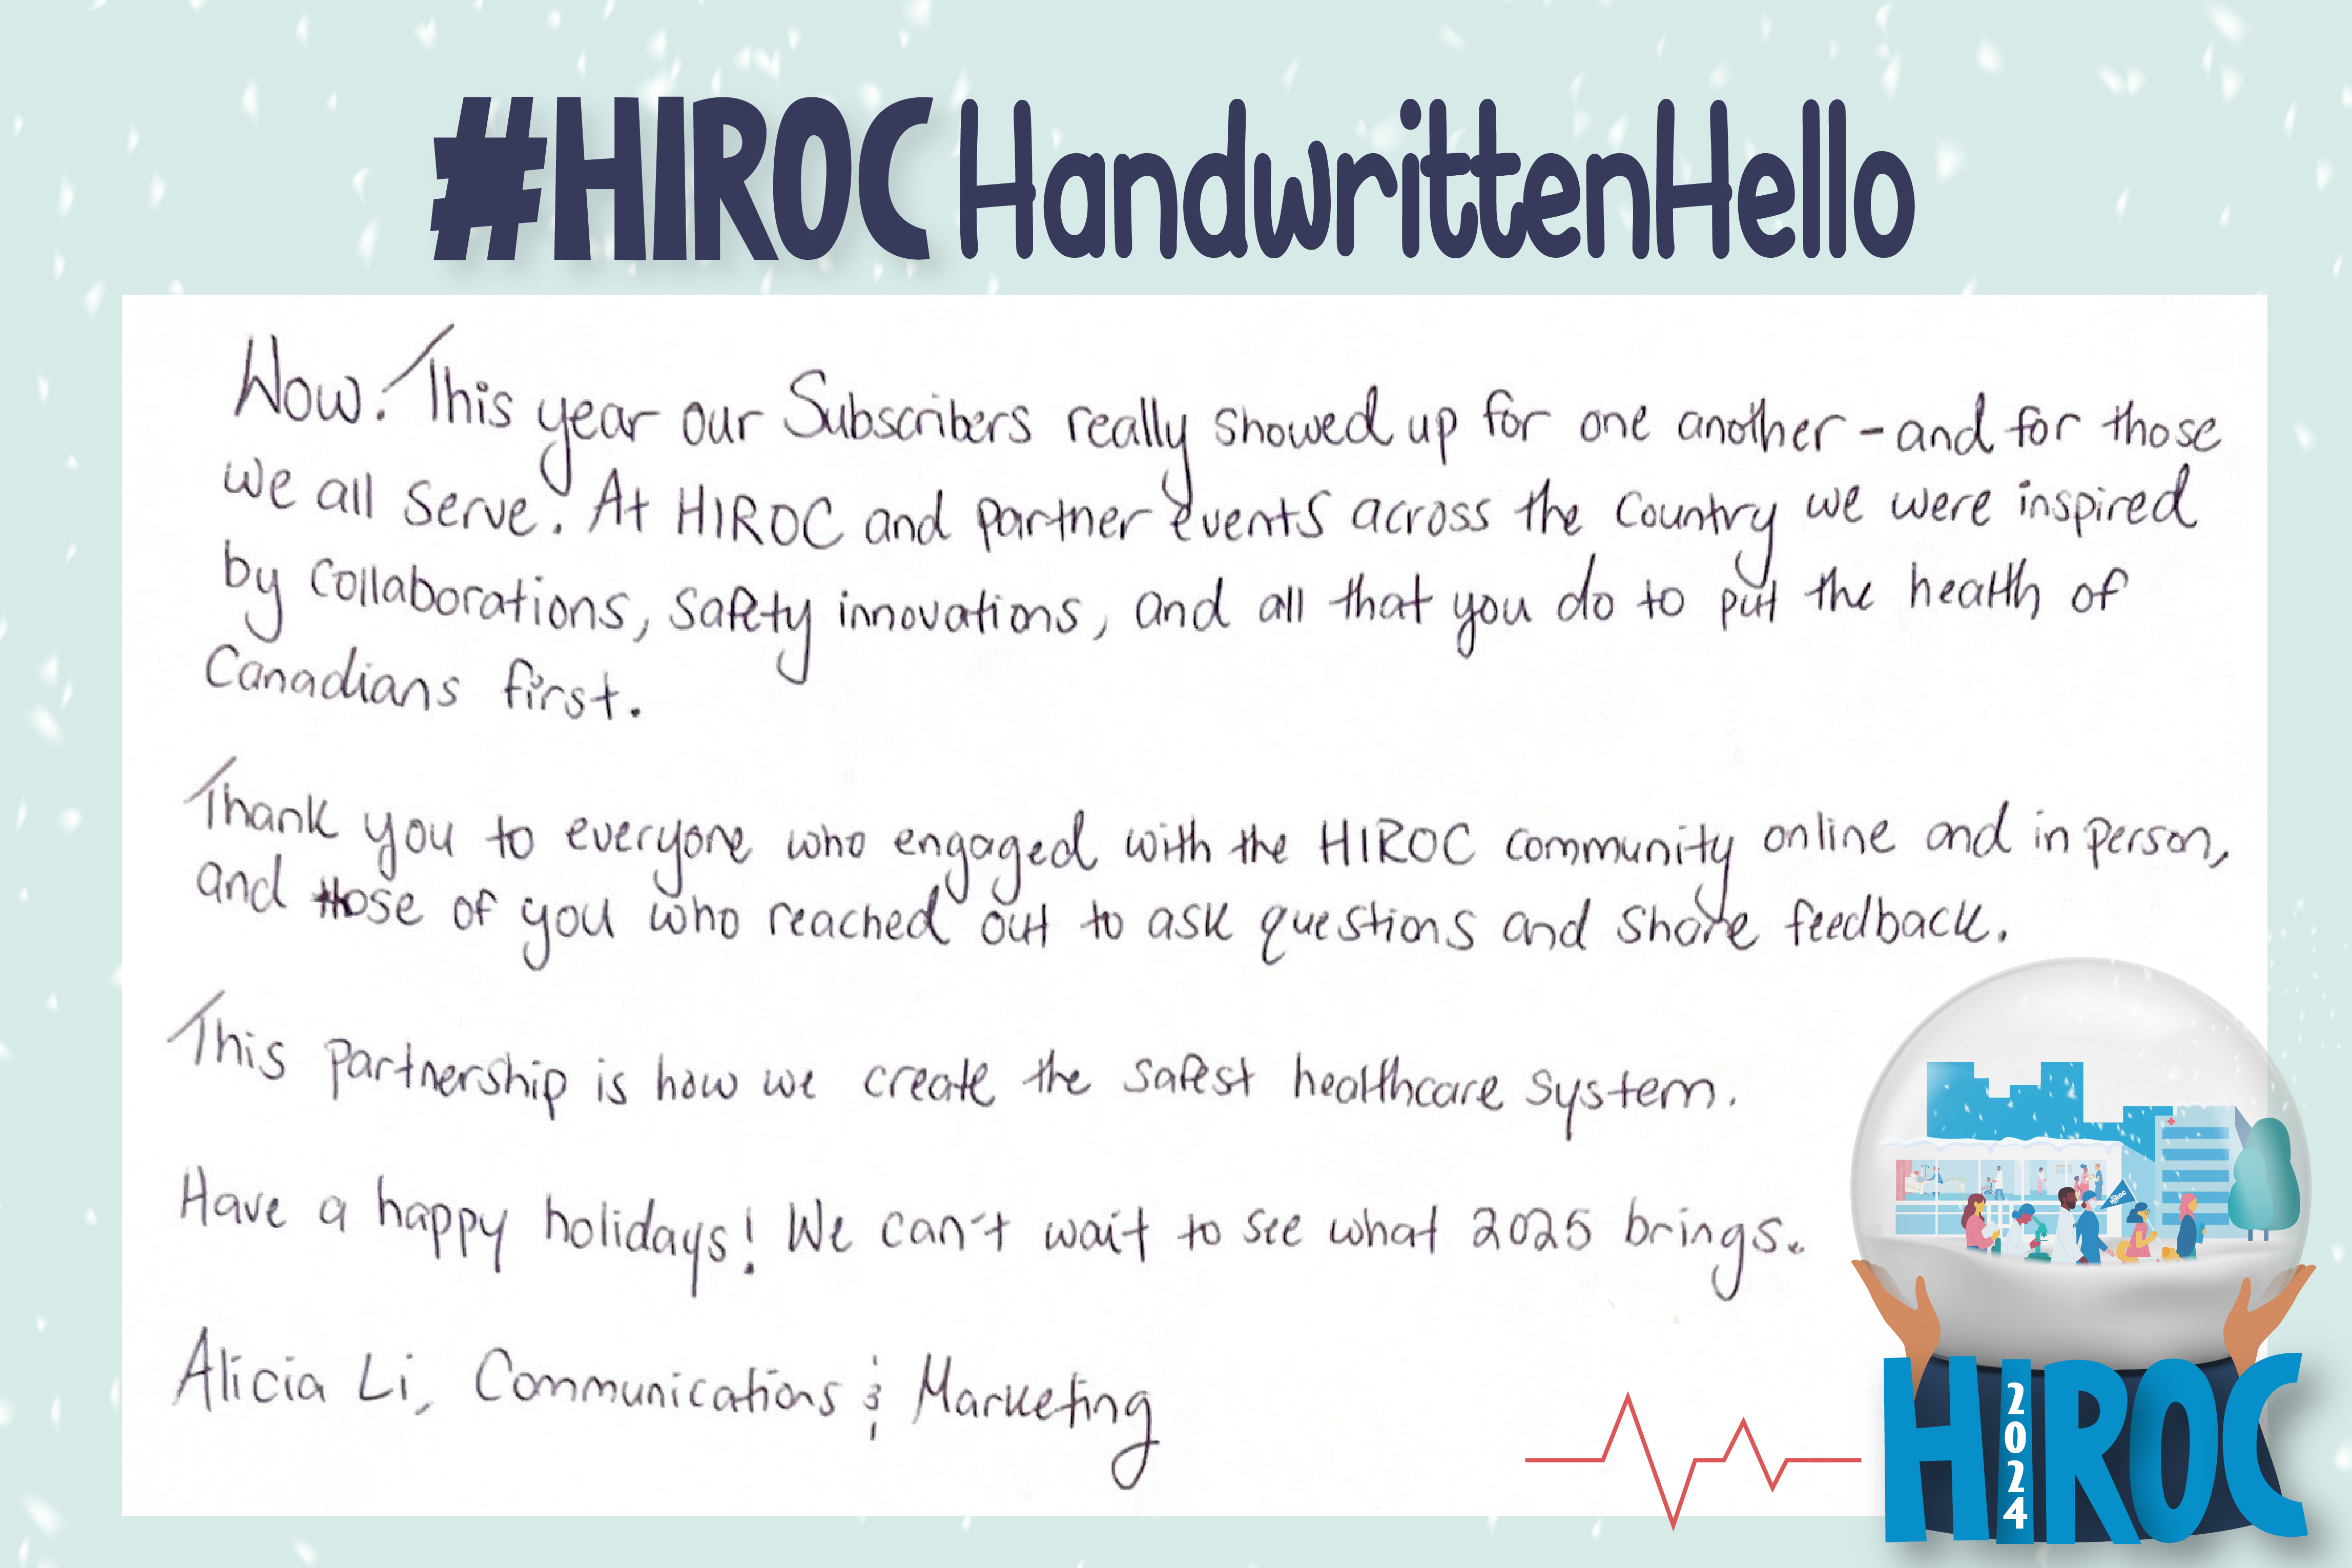 #HIROC HandwrittenHello
Wow. This year our Subscribers really showed up for one another - and for those
we all serve. At HIROC and partner events across the country we were inspired
by collaborations, safety innovations, and all that you do to put the health of
Canadians first.
Thank you to everyone who engaged with the HIROC community online and in person,
and those of you who reached out to ask questions and share feedback.
This partnership is how we create the safest healthcare system.
Have a happy holidays! We can't wait to see what 2025 brings.
Alicia Li, Communications & Marketing
HIROC
HIROC
2024